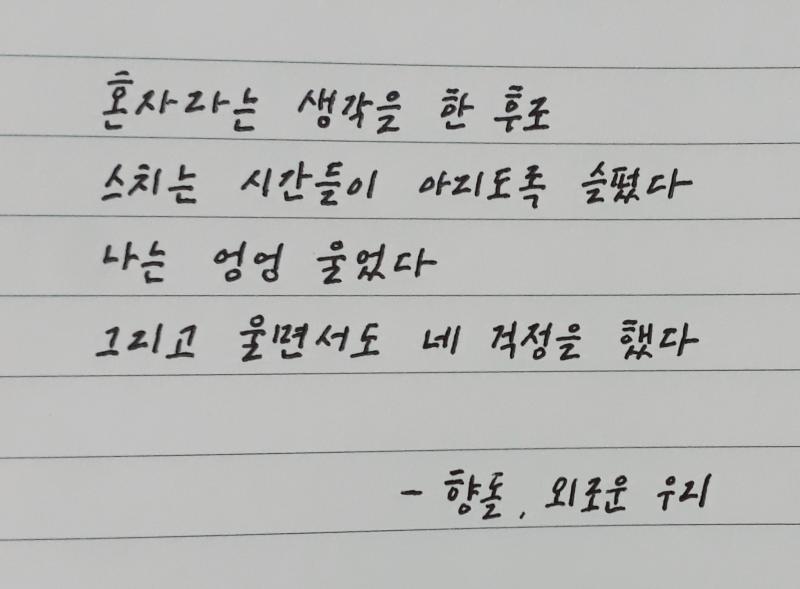 혼자라는 생각을 한 후로
스치는 시간들이 아리도록 슬펐다
나는 엉엉 울었다
그리고 울면서도 네 걱정을 했다
- 향돌, 외로운 우리